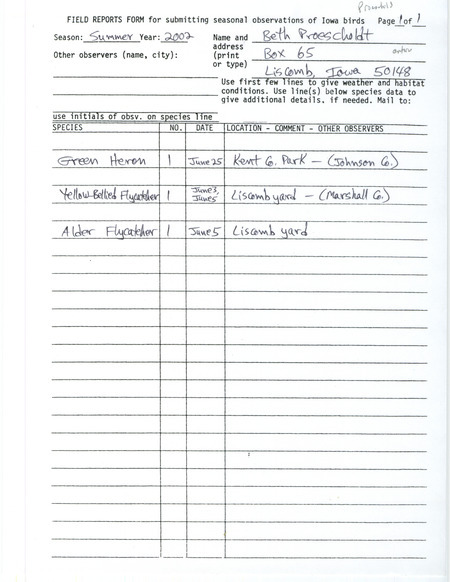 FIELD REPORTS FORM for submitting seasonal observations of Iowa birds Page 1 of 1
Season: Summer Year: 2002 Name and Beth Proescholdt
address
Other observers (name, city): (print Box 65
or type) Liscomb, Iowa 50148
Use first few lines to give weather and habitat
conditions. Use line(s) below species data to
give additional details, if needed. Mail to:
use initials of obsv. on species line
SPECIES NO. DATE LOCATION - COMMENT - OTHER OBSERVERS
Green Heron 1 June 25 Kent Co. Park - (Johnson Co.)
Yellow-Bellied Flycatcher 1 June 3, June 5 Liscomb yard - (Marshall Co.)
Alder Flycatcher 1 June 5 Liscomb yard